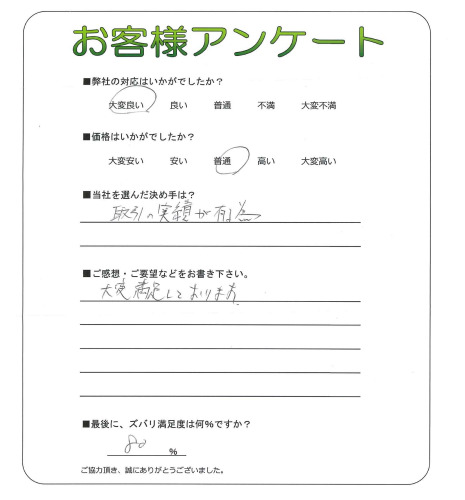 お客様アンケート
■弊社の対応はいかがでしたか？
大変良い 良い 普通 不満 大変不満
■価格はいかがでしたか？
大変安い 安い 普通 高い 大変高い
■当社を選んだ決め手は？
取引の実績が有る為
■ご感想・ご要望などをお書き下さい。
大変満足しております
■最後に、ズバリ満足度は何％ですか？
80 ％
ご協力頂き、誠にありがとうございました。